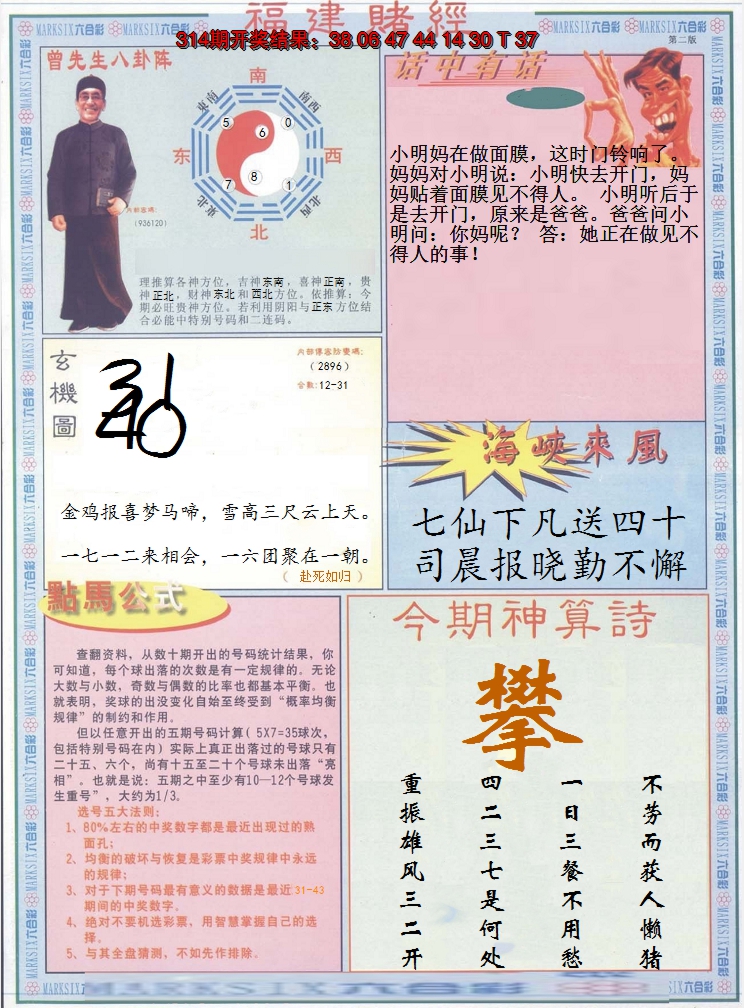 福建賭經
314期开奖结果：38 06 47 44 14 30 T 37
第二版
MARKSIX六合彩
曾先生八卦阵
南
东南
南西
5
6
0
东
西
7
8
1
东北
北西
北
内部密碼:
(936120)
理推算各神方位，吉神东南，喜神正南，贵
神正北，财神东北和西北方位。依推算：今
期必旺贵神方位。若利用阴阳与正东方位结
合必能中特别号码和二连码。
话中有话
小明妈在做面膜，这时门铃响了。
妈妈对小明说：小明快去开门，妈
妈贴着面膜见不得人。 小明听后于
是去开门，原来是爸爸。爸爸问小
明问：你妈呢？ 答：她正在做见不
得人的事！
玄機圖
（2896）
合数:12-31
金鸡报喜梦马啼，雪高三尺云上天。
一七一二来相会，一六团聚在一朝。
（ 赴死如归 ）
海峽來風
七仙下凡送四十
司晨报晓勤不懈
點馬公式
查翻资料，从数十期开出的号码统计结果，你
可知道，每个球出落的次数是有一定规律的。无论
大数与小数，奇数与偶数的比率也都基本平衡。也
就表明，奖球的出没变化自始至终受到“概率均衡
规律”的制约和作用。
但以任意开出的五期号码计算( 5X7=35球次，
包括特别号码在内) 实际上真正出落过的号球只有
二十五、六个，尚有十五至二十个号球未出落“亮
相”。也就是说：五期之中至少有10—12个号球发
生重号”，大约为1/3。
选号五大法则：
1、80%左右的中奖数字都是最近出现过的熟
面孔；
2、均衡的破坏与恢复是彩票中奖规律中永远
的规律；
3、对于下期号码最有意义的数据是最近31-43
期间的中奖数字。
4、绝对不要机选彩票，用智慧掌握自己的选
择。
5、与其全盘猜测，不如先作排除。
今期神算詩
攀
不劳而获人懒猪
一日三餐不用愁
四二三七是何处
重振雄风三二开